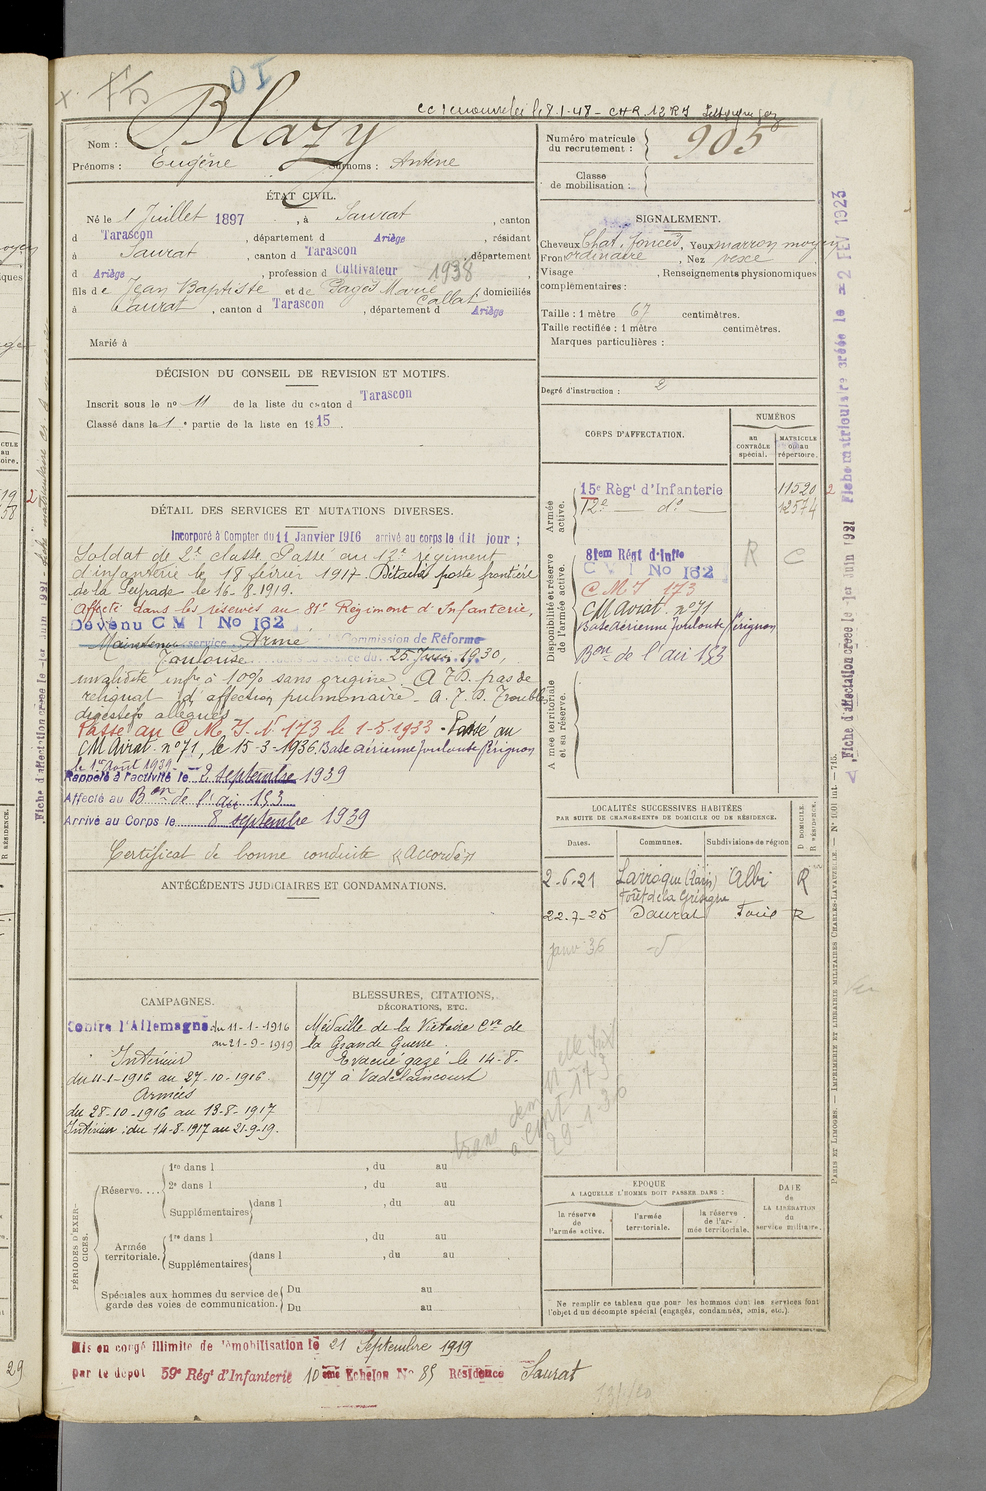 DI
Blazy
Nom :
Prénoms : Eugène Surnoms : Antoine
Numéro matricule du recrutement : 905
Classe de mobilisation :
ÉTAT CIVIL.
Né le 1 Juillet 1897, à Saurat, canton
d Tarascon, département d Ariège, résidant
à Saurat, canton d Tarascon, département
d Ariège, profession d Cultivateur 1938
fils de Jean Baptiste et de Pagès Marie Callat, domiciliés
à Saurat, canton d Tarascon, département d Ariège
Marié à
SIGNALEMENT.
Cheveux Chat. foncés, Yeux marron moyen
Front ordinaire, Nez vexe
Visage , Renseignements physionomiques
complémentaires :
Taille : 1 mètre 67 centimètres.
Taille rectifiée : 1 mètre centimètres.
Marques particulières :
Degré d'instruction : 2
DÉCISION DU CONSEIL DE REVISION ET MOTIFS.
Inscrit sous le no 11 de la liste du canton d Tarascon
Classé dans la 1e partie de la liste en 1915.
DÉTAIL DES SERVICES ET MUTATIONS DIVERSES.
Incorporé à Compter du 11 Janvier 1916 arrivé au corps le dit jour ;
Soldat de 2e classe. Passé au 12e régiment
d'infanterie le 18 février 1917. Détaché poste frontière
de la Peyrade le 16-8-1919.
Affecté dans les réserves au 81e Régiment d'Infanterie,
Devenu C M I No 162
Maintenu service Armé Commission de Réforme
Toulouse 25 1930,
invalidité infre à 10% sans origine. A.T.D. pas de
reliquat d'affection pulmonaire. A.T.D. Troubles
digestifs allégués
Passé au C.M.I. N° 173 le 1-5-1933 - Passé au
CM Aviat. n°71, le 15-3-1936. Base aérienne Toulouse Pérignon
le 1er Août 1939
Rappelé à l'activité le 2 septembre 1939
Affecté au Bon de l'air 153
Arrivé au Corps le 8 septembre 1939
Certificat de bonne conduite "Accordé"
CORPS D'AFFECTATION.
NUMÉROS
au CONTRÔLE spécial.
MATRICULE ou au répertoire.
Armée active.
15e Régt d'Infanterie 11520
12e do 12574
Disponibilité et réserve de l'armée active.
81em Régt d'Infie R C
C V I No 162
C M I 173
CM Aviat. n°71
Base Aérienne Toulouse Pérignon
Bon de l'air 153
Armée territoriale et sa réserve.
LOCALITÉS SUCCESSIVES HABITÉES
PAR SUITE DE CHANGEMENTS DE DOMICILE OU DE RÉSIDENCE.
Dates. Communes. Subdivisions de région D DOMICILE. R RÉSIDENCE.
2-6-21 Larroque (Tarn) Albi R
Forêt de la Grésigne
22-7-25 Saurat Foix R
janv 36 d°
ANTÉCÉDENTS JUDICIAIRES ET CONDAMNATIONS.
CAMPAGNES.
Contre l'Allemagne du 11-1-1916
au 21-9-1919
Intérieur
du 11-1-1916 au 27-10-1916.
Armées
du 28-10-1916 au 13-8-1917
Intérieur : du 14-8-1917 au 21-9-19.
BLESSURES, CITATIONS,
DÉCORATIONS, ETC.
Médaille de la Victoire Cve de
la Grande Guerre.
Evacué gazé le 14-8-
1917 à Vadelaincourt
29-1-36
PÉRIODES D'EXERCICES.
Réserve.... 1re dans l , du au
2e dans l , du au
Supplémentaires dans l , du au
Armée territoriale. 1re dans l , du au
Supplémentaires dans l , du au
Spéciales aux hommes du service de garde des voies de communication. Du au
Du au
EPOQUE
A LAQUELLE L'HOMME DOIT PASSER DANS :
la réserve de l'armée active.
l'armée territoriale.
la réserve de l'armée territoriale.
DATE de LA LIBÉRATION du service militaire.
Ne remplir ce tableau que pour les hommes dont les services font
l'objet d'un décompte spécial (engagés, condamnés, omis, etc.).
Mis en congé illimité de démobilisation le 21 Septembre 1919
par le dépôt 59e Régt d'Infanterie 10ème Echelon No 85 Résidence Saurat
Fiche matriculaire créée le 2 FEV 1923
Fiche d'affectation créée le 1er Juin 1921
PARIS ET LIMOGES. — IMPRIMERIE ET LIBRAIRIE MILITAIRES CHARLES-LAVAUZELLE.